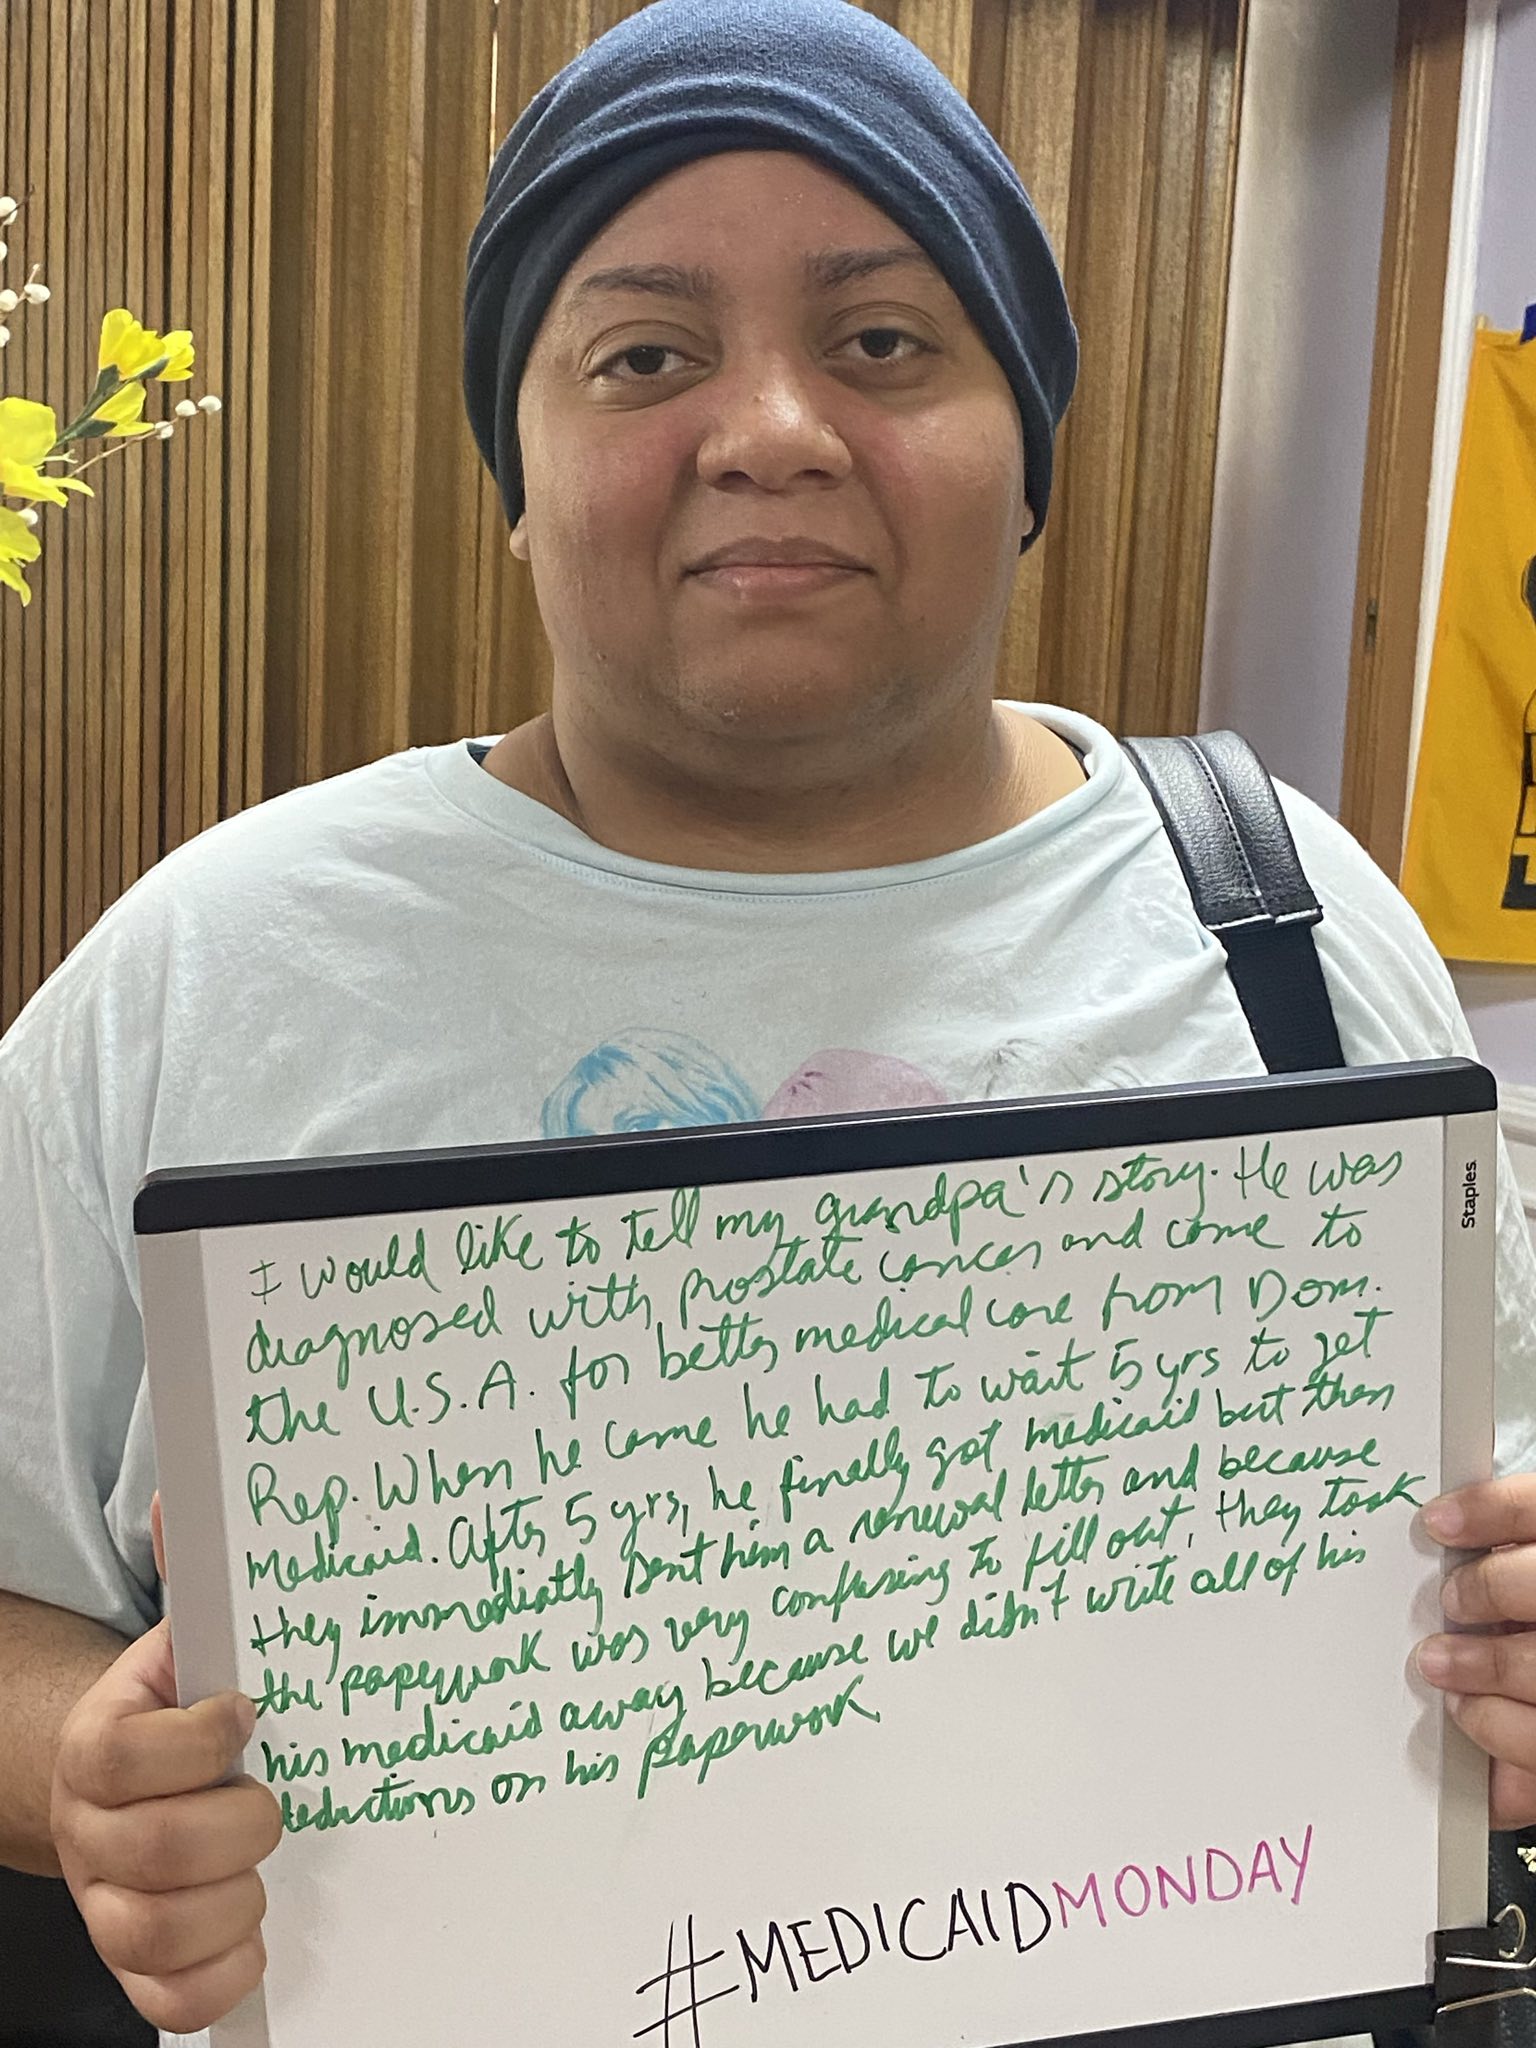 I would like to tell my grandpa's story. He was
diagnosed with prostate cancer and came to
the U.S.A. for better medical care from Dom.
Rep. When he came he had to wait 5 yrs to get
medicaid. After 5 yrs, he finally got medicaid but then
they immediatly sent him a renewal letter and because
the paperwork was very confusing to fill out, they took
his medicaid away because we didn't write all of his
deductions on his paperwork
#MEDICAIDMONDAY
Staples